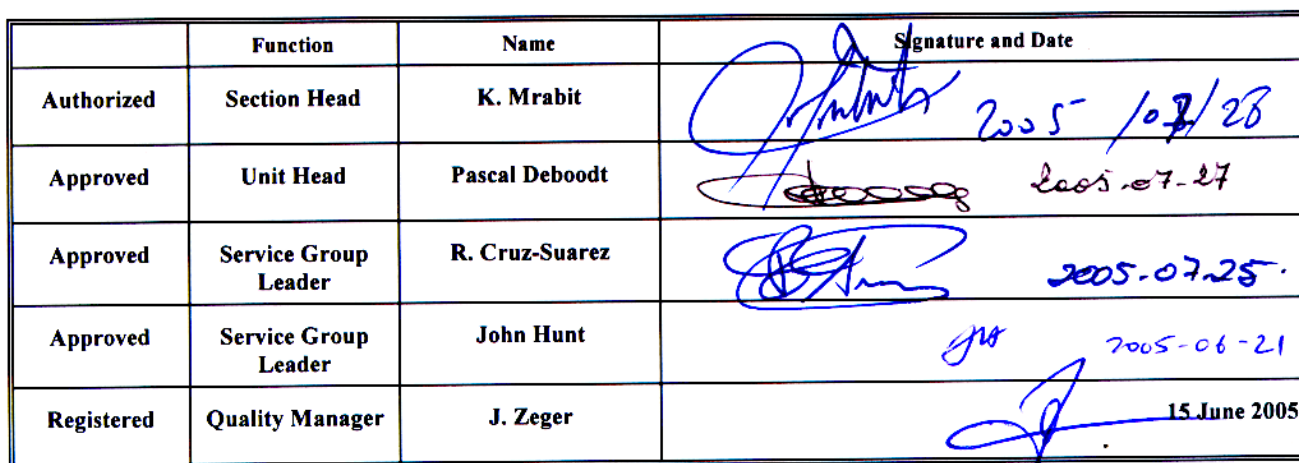 Function Name Signature and Date
Authorized Section Head K. Mrabit 2005 /07/28
Approved Unit Head Pascal Deboodt 2005-07-27
Approved Service Group Leader R. Cruz-Suarez 2005-07-25.
Approved Service Group Leader John Hunt 2005-06-21
Registered Quality Manager J. Zeger 15 June 2005